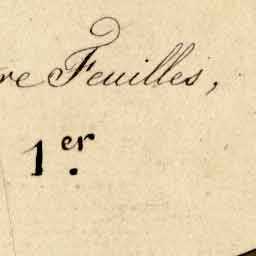 re Feuilles,
1er.